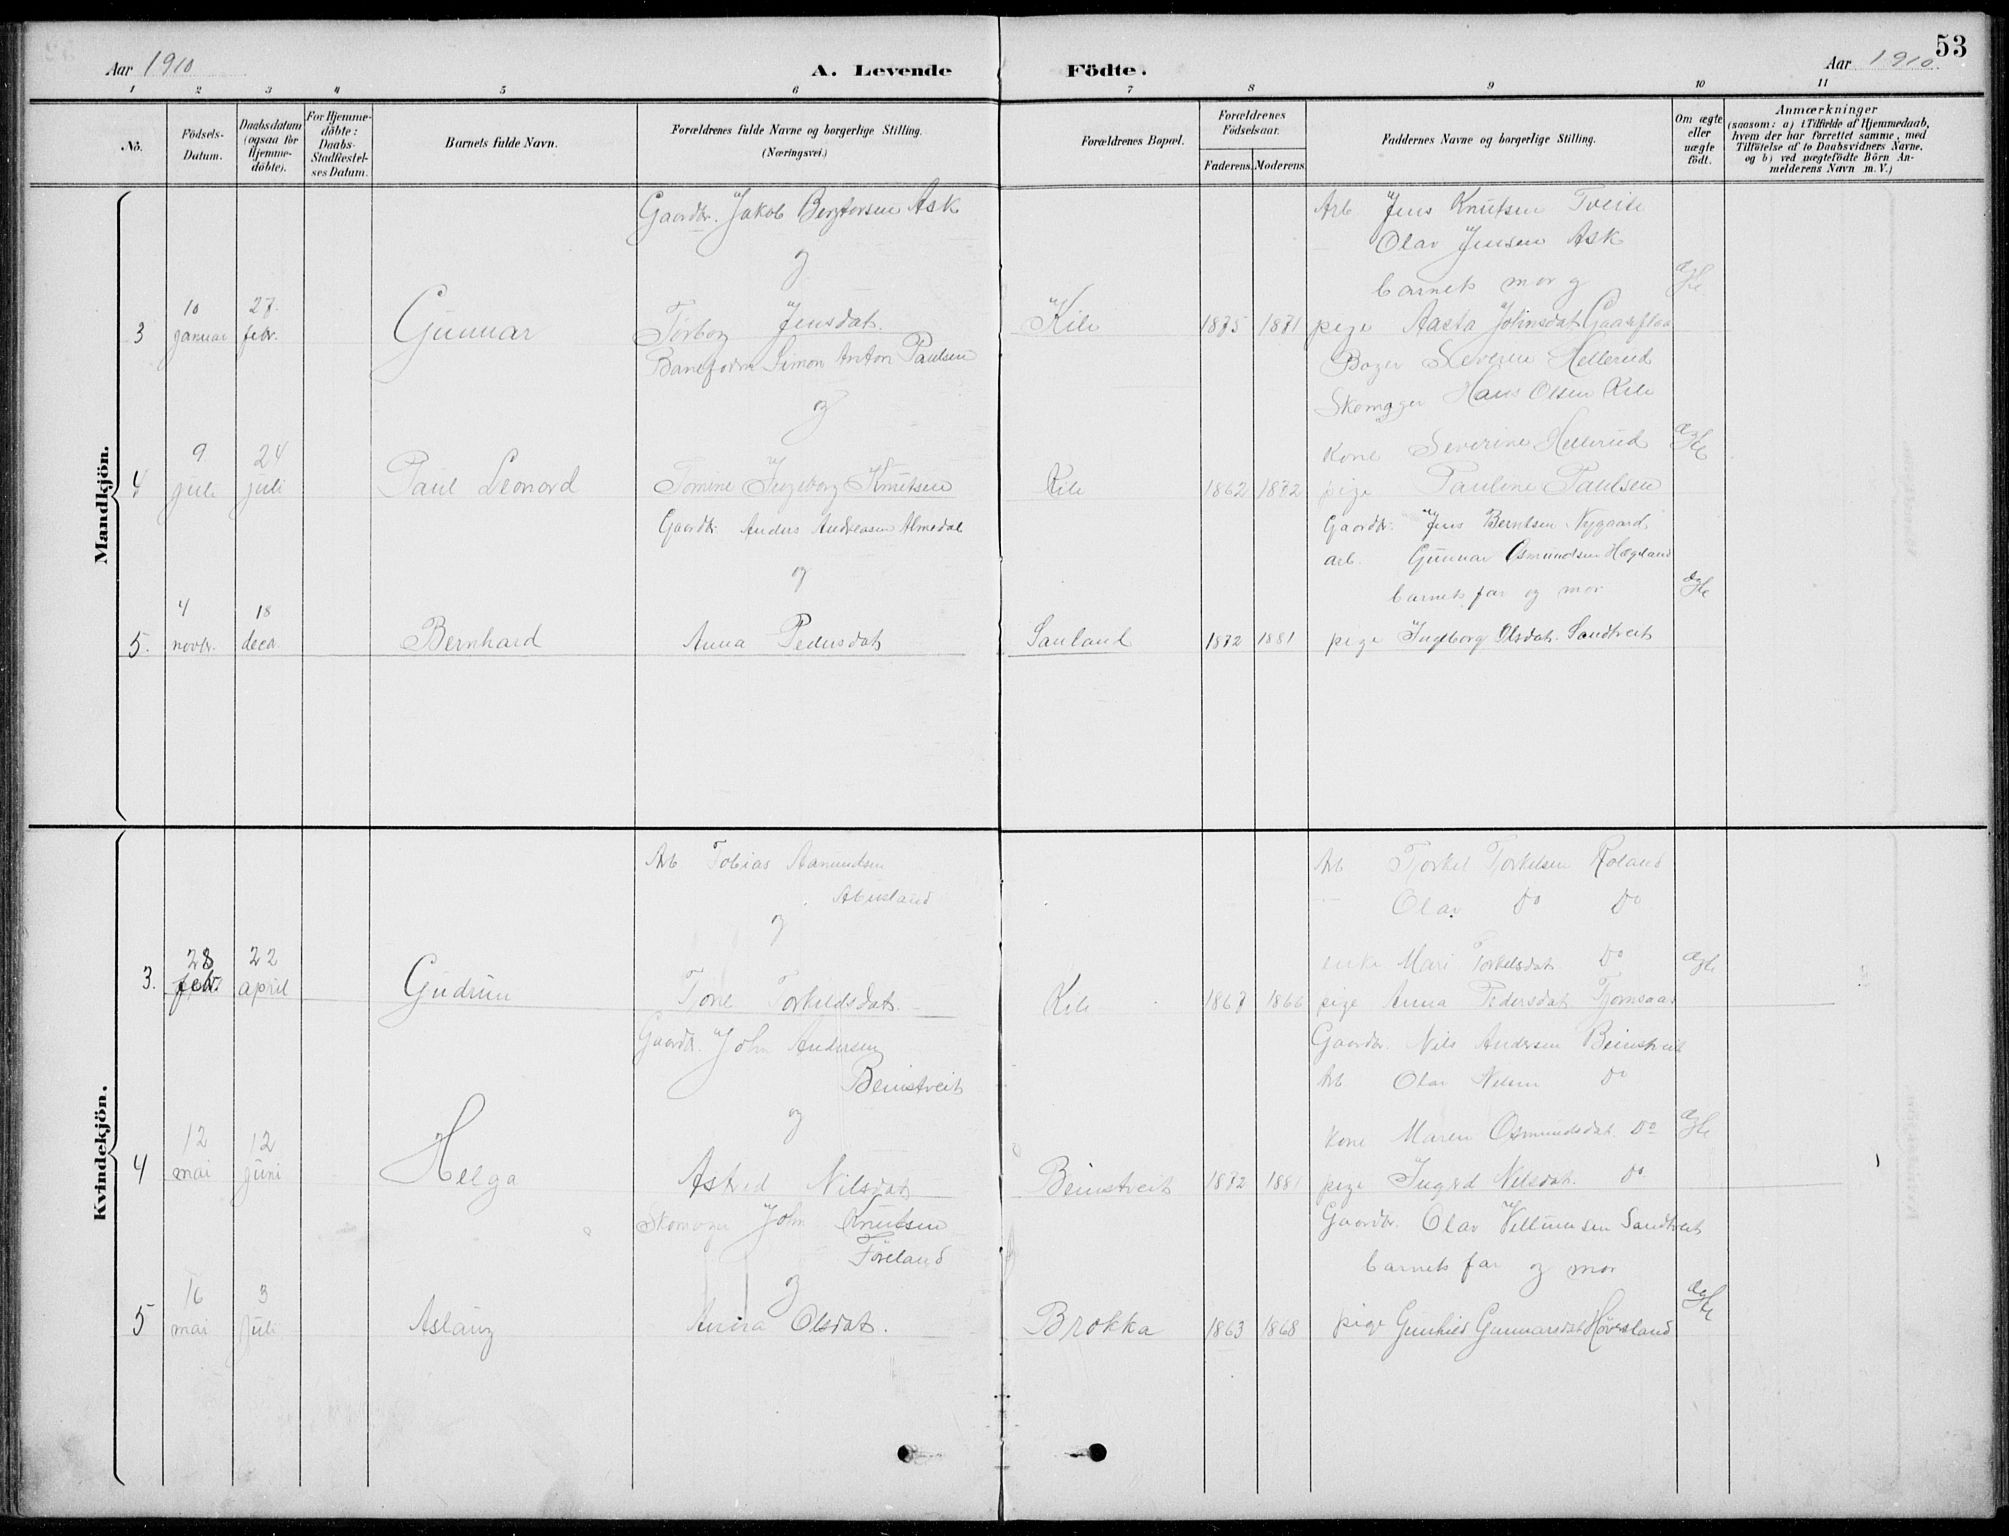 53
Aar 1910
A. Levende
Födte.
Aar 1910
1 2 3 4 5 6 7 8 9 10 11
No.
Födsels-Datum.
Daabsdatum (ogsaa för Hjemme-döbte).
For Hjemme-döbte: Daabs-Stadfæstel-ses Datum.
Barnets fulde Navn.
Forældrenes fulde Navne og borgerlige Stilling.
(Næringsvei.)
Forældrenes Bopæl.
Forældrenes Födselsaar.
Faderens. Moderens.
Faddernes Navne og borgerlige Stilling.
Om ægte eller uægte födt.
Anmærkninger
(saasom: a) i Tilfælde af Hjemmedaab, hvem der har forrettet samme, med Tilföielse af to Daabsvidners Navne. og b) ved uægtefödte Börn An-melderens Navn m. V.)
Mandkjön.
Gaardbr. Jakob Bergtorsen Ask
og
Torborg Jensdat.
3 10 januar 27. febr. Gunnar
Kile 1875 1871
Arb Jens Knutsen Tveite
Olav Jensen Ask
barnets mor og
pige Aasta Johnsdat Gaaseflaa
ægte
Baneform Simon Anton Paulsen
og
Tomine Ingeborg Knutsen
4 9. juli 24 juli Paul Leonard
Kile 1862 1872
Bager Severin Hellerud
Skomager Hans Olsen Kile
Kone Severine Hellerud
pige Pauline Paulsen
ægte
Gaardbr. Anders Andreasen Almedal
og
Anna Pedersdat
5. 4 novbr. 18 decbr. Bernhard
Sanland 1872 1881
Gaardbr. Jens Berntsen Nygaard
arb. Gunnar Osmundsen Hægeland
barnets far og mor
pige Ingeborg Olsdat. Sandtveit
ægte
Kvindekjön.
Arb Tobias Aanundsen
Abusland
og
Tone Torkeldsdat.
3. 28 febr. 22 april Gudrun
Kile 1867 1866
Arb Torkel Torkelsen Roland
Olav Do Do
enke Mari Torkelsdat Do
pige Anna Pedersdat Tjomsaas
ægte
Gaardbr. John Andersen
Beinstveit
og
Astrid Nilsdat
4 12 mai 12 juni Helga
Beinstveit 1872 1881
Gaardbr. Nils Andersen Beinstveit
Arb Olav Nilsen Do
Kone Maren Osmundsdat. Do
pige Ingrid Nilsdat. Do
ægte
Skomager John Knutsen
Föreland
og
Anna Olsdat.
5 16 mai 3 juli Aslaug
Brokka 1863 1868
Gaardbr. Olav Vellumsen Sandtveit
barnets far og mor
pige Gunhild Gunnarsdat Hövesland
ægte